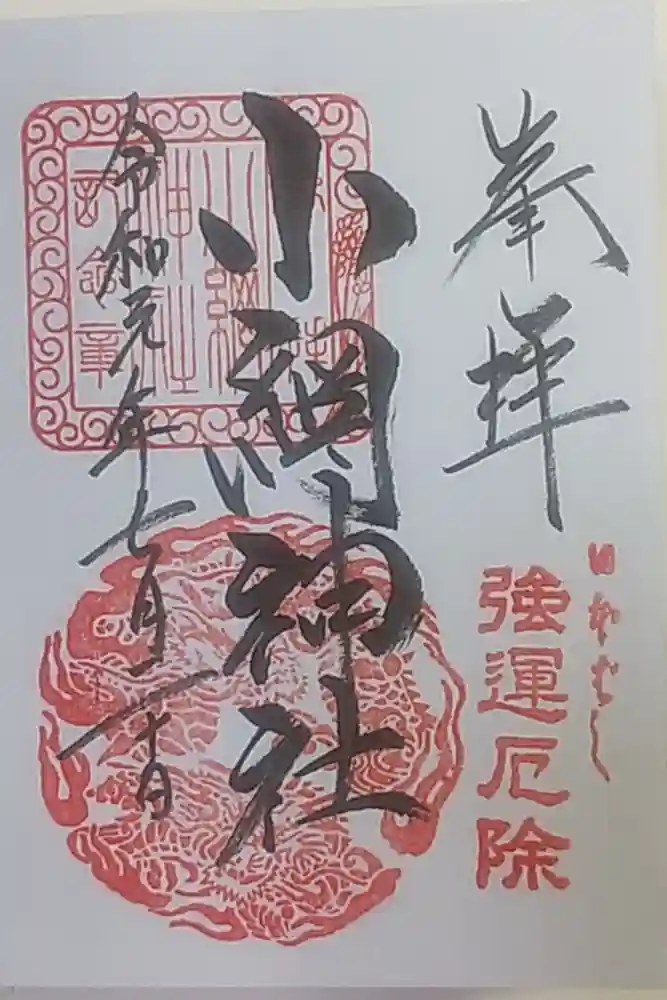 奉拝
日本ばし
強運厄除
小網神社
令和元年七月二十日
小網
神社